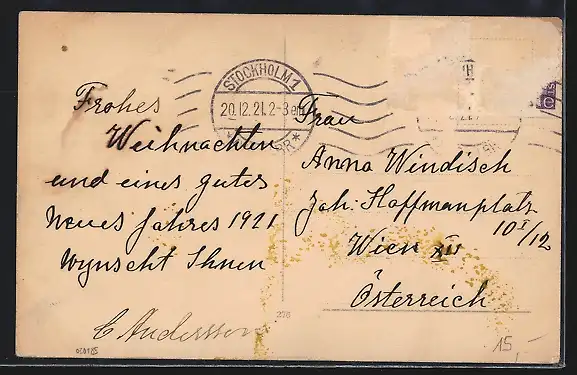 STOCKHOLM 1
20.12.21. 2-3 em
Frohes
Weihnachten
und eines gutes
Neues Jahres 1921
wynscht Ihnen
C Andersson
Frau
Anna Windisch
Joh: Hoffmanplatz
10 I/12
Wien XII
Österreich
270
15,